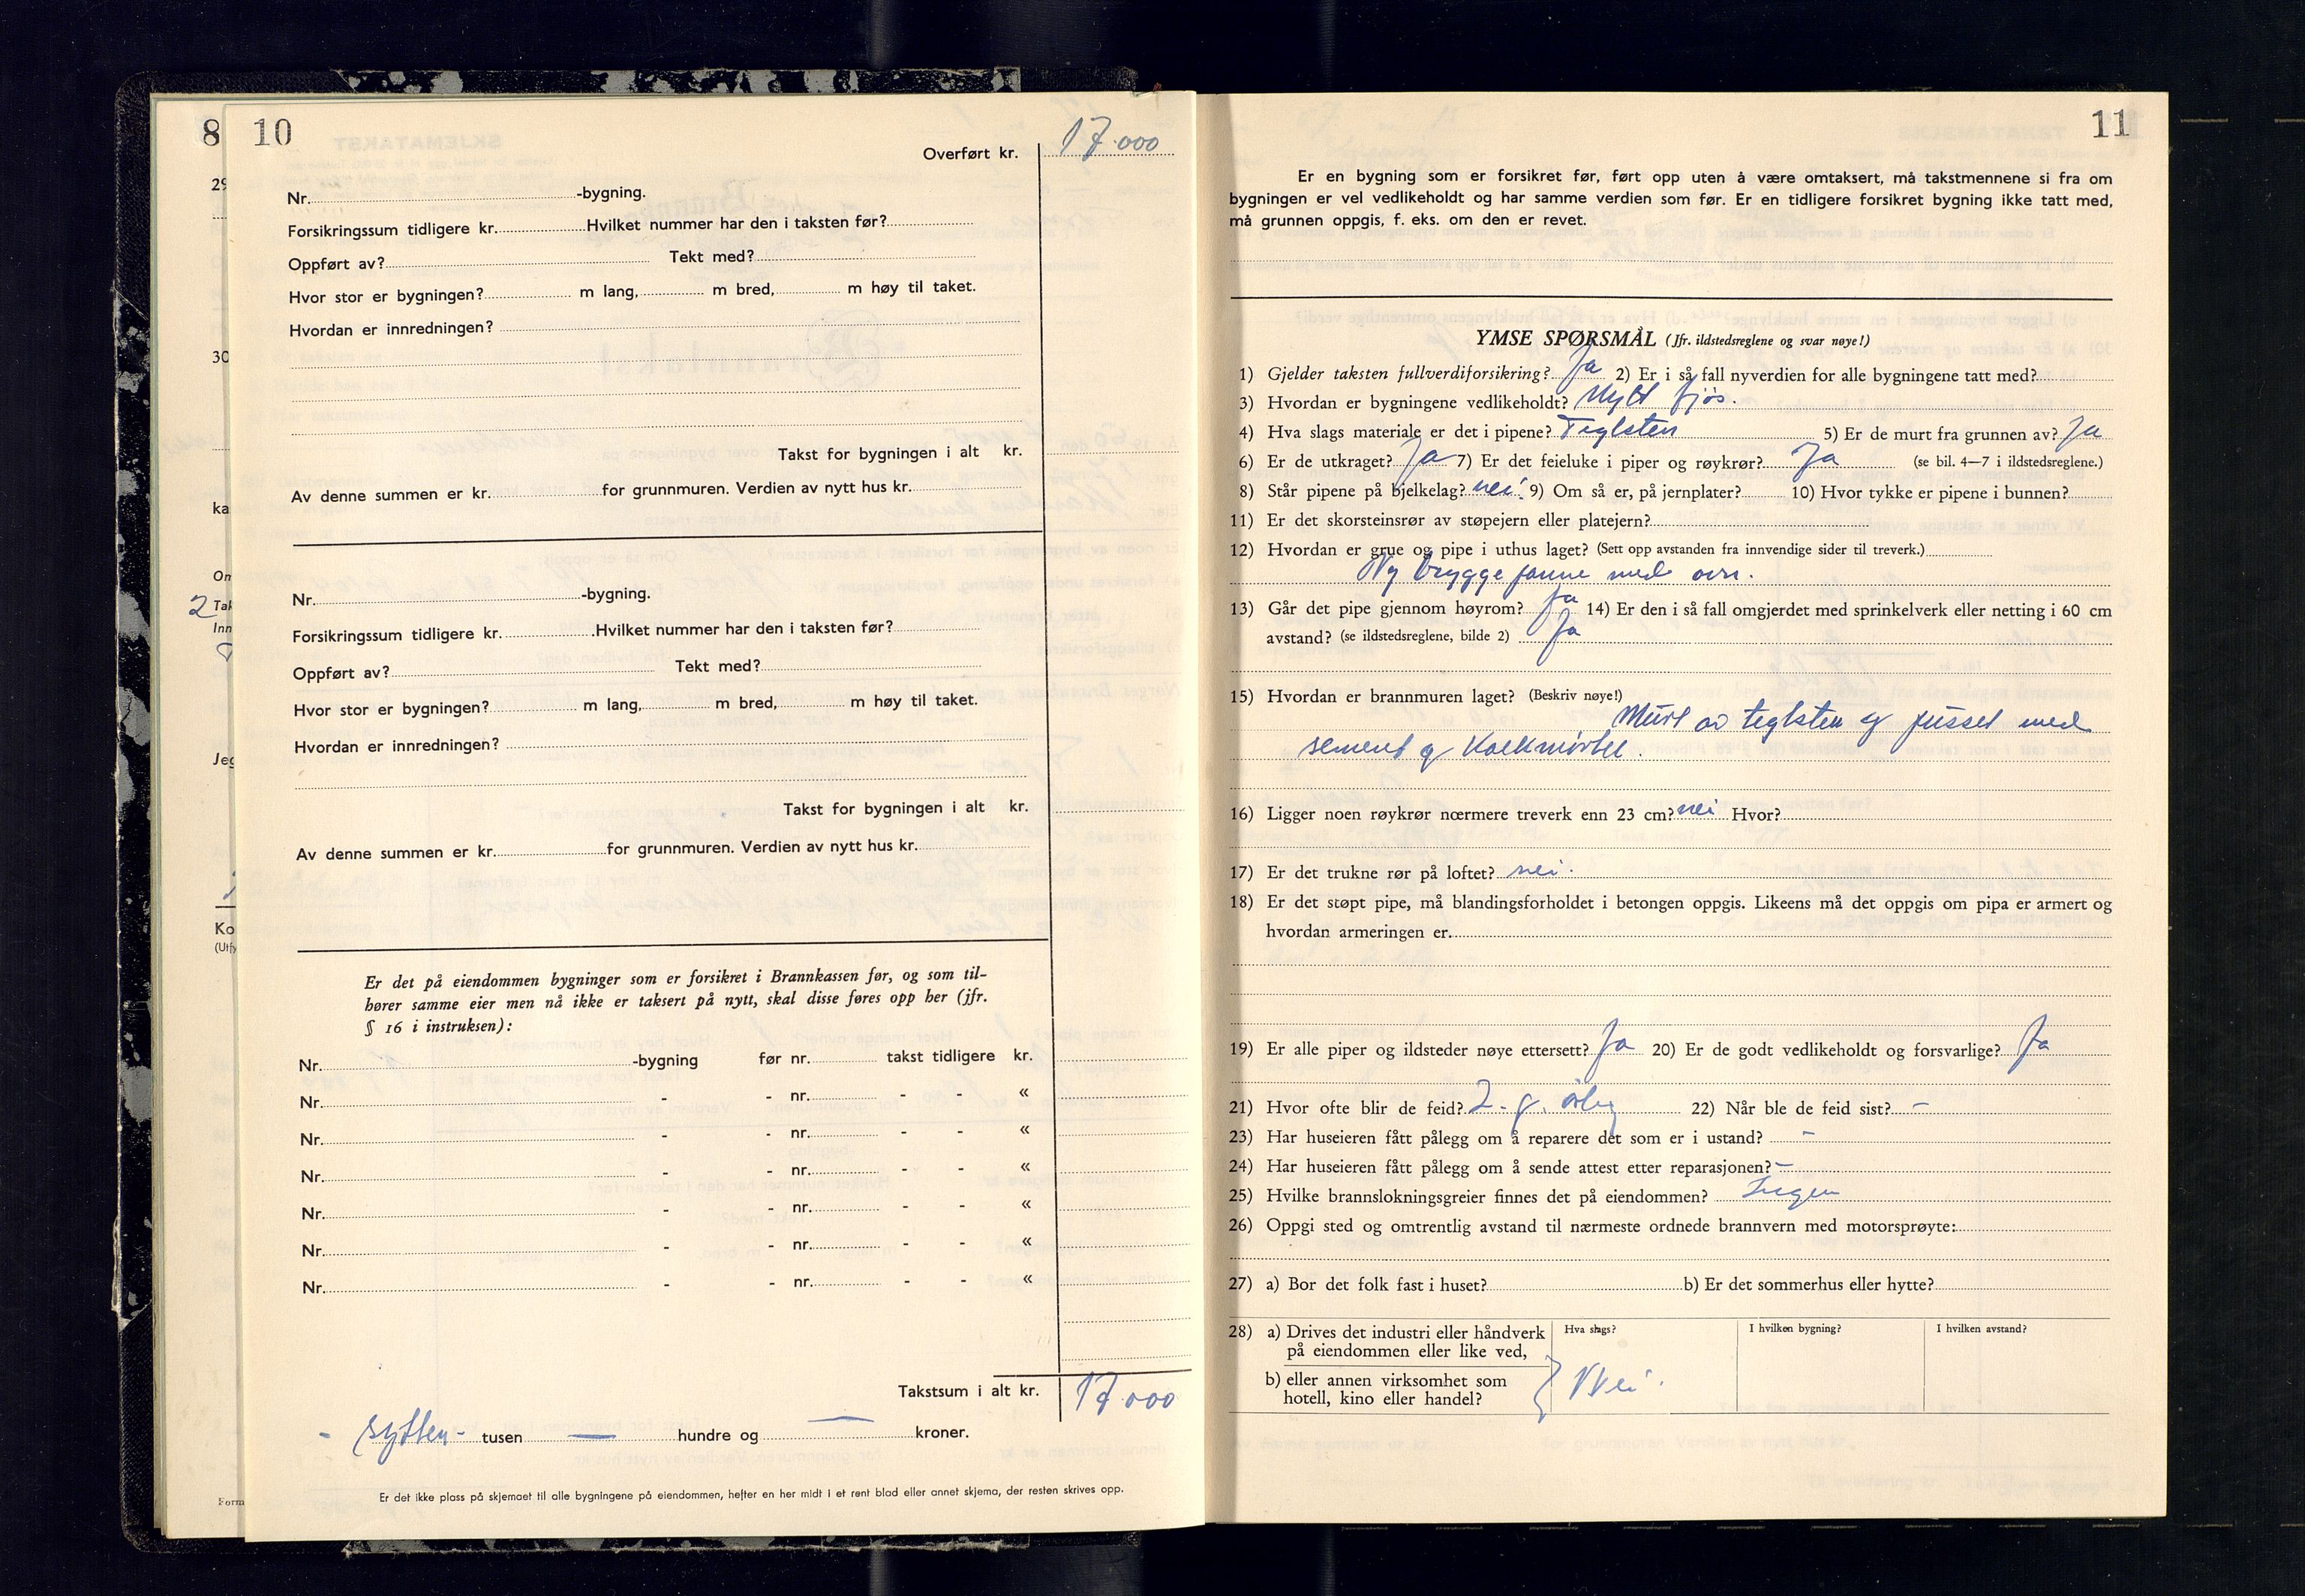 8
29
30
ka
On
2 Tak
Inn
Jeg
Ko
(Utfy
Form
10
Overført kr. 17.000
Nr. -bygning.
Forsikringssum tidligere kr. Hvilket nummer har den i taksten før?
Oppført av? Tekt med?
Hvor stor er bygningen? m lang, m bred, m høy til taket.
Hvordan er innredningen?
Takst for bygningen i alt kr.
Av denne summen er kr. for grunnmuren. Verdien av nytt hus kr.
Nr. -bygning.
Forsikringssum tidligere kr. Hvilket nummer har den i taksten før?
Oppført av? Tekt med?
Hvor stor er bygningen? m lang, m bred, m høy til taket.
Hvordan er innredningen?
Takst for bygningen i alt kr.
Av denne summen er kr. for grunnmuren. Verdien av nytt hus kr.
Er det på eiendommen bygninger som er forsikret i Brannkassen før, og som til-
hører samme eier men nå ikke er taksert på nytt, skal disse føres opp her (jfr.
§ 16 i instruksen):
Nr. -bygning før nr. takst tidligere kr.
Nr. - - nr. - - «
Nr. - - nr. - - «
Nr. - - nr. - - «
Nr. - - nr. - - «
Nr. - - nr. - - «
Nr. - - nr. - - «
Takstsum i alt kr. 17.000
- sytten - tusen — hundre og — kroner.
Er det ikke plass på skjemaet til alle bygningene på eiendommen, hefter en her midt i et rent blad eller annet skjema, der resten skrives opp.
11
Er en bygning som er forsikret før, ført opp uten å være omtaksert, må takstmennene si fra om
bygningen er vel vedlikeholdt og har samme verdien som før. Er en tidligere forsikret bygning ikke tatt med,
må grunnen oppgis, f. eks. om den er revet.
YMSE SPØRSMÅL (Jfr. ildstedsreglene og svar nøye!)
1) Gjelder taksten fullverdiforsikring? Ja 2) Er i så fall nyverdien for alle bygningene tatt med?
3) Hvordan er bygningene vedlikeholdt? Nytt fjøs.
4) Hva slags materiale er det i pipene? Teglsten 5) Er de murt fra grunnen av? Ja
6) Er de utkraget? Ja 7) Er det feieluke i piper og røykrør? Ja (se bil. 4—7 i ildstedsreglene.)
8) Står pipene på bjelkelag? nei. 9) Om så er, på jernplater? 10) Hvor tykke er pipene i bunnen?
11) Er det skorsteinsrør av støpejern eller platejern?
12) Hvordan er grue og pipe i uthus laget? (Sett opp avstanden fra innvendige sider til treverk.)
Ny bryggepanne med ovn.
13) Går det pipe gjennom høyrom? Ja 14) Er den i så fall omgjerdet med sprinkelverk eller netting i 60 cm
avstand? (se ildstedsreglene, bilde 2) Ja
15) Hvordan er brannmuren laget? (Beskriv nøye!)
Murt av teglsten og pusset med
sement og Kalkmørtel.
16) Ligger noen røykrør nœrmere treverk enn 23 cm? nei Hvor?
17) Er det trukne rør på loftet? nei.
18) Er det støpt pipe, må blandingsforholdet i betongen oppgis. Likeens må det oppgis om pipa er armert og
hvordan armeringen er.
19) Er alle piper og ildsteder nøye ettersett? Ja 20) Er de godt vedlikeholdt og forsvarlige? Ja
21) Hvor ofte blir de feid? 2. g. årleg 22) Når ble de feid sist? -
23) Har huseieren fått pålegg om å reparere det som er i ustand? -
24) Har huseieren fått pålegg om å sende attest etter reparasjonen? -
25) Hvilke brannslokningsgreier finnes det på eiendommen? Ingen
26) Oppgi sted og omtrentlig avstand til nærmeste ordnede brannvern med motorsprøyte:
27) a) Bor det folk fast i huset? b) Er det sommerhus eller hytte?
28) a) Drives det industri eller håndverk Hva slags? I hvilken bygning? I hvilken avstand?
på eiendommen eller like ved,
b) eller annen virksomhet som } Nei.
hotell, kino eller handel?